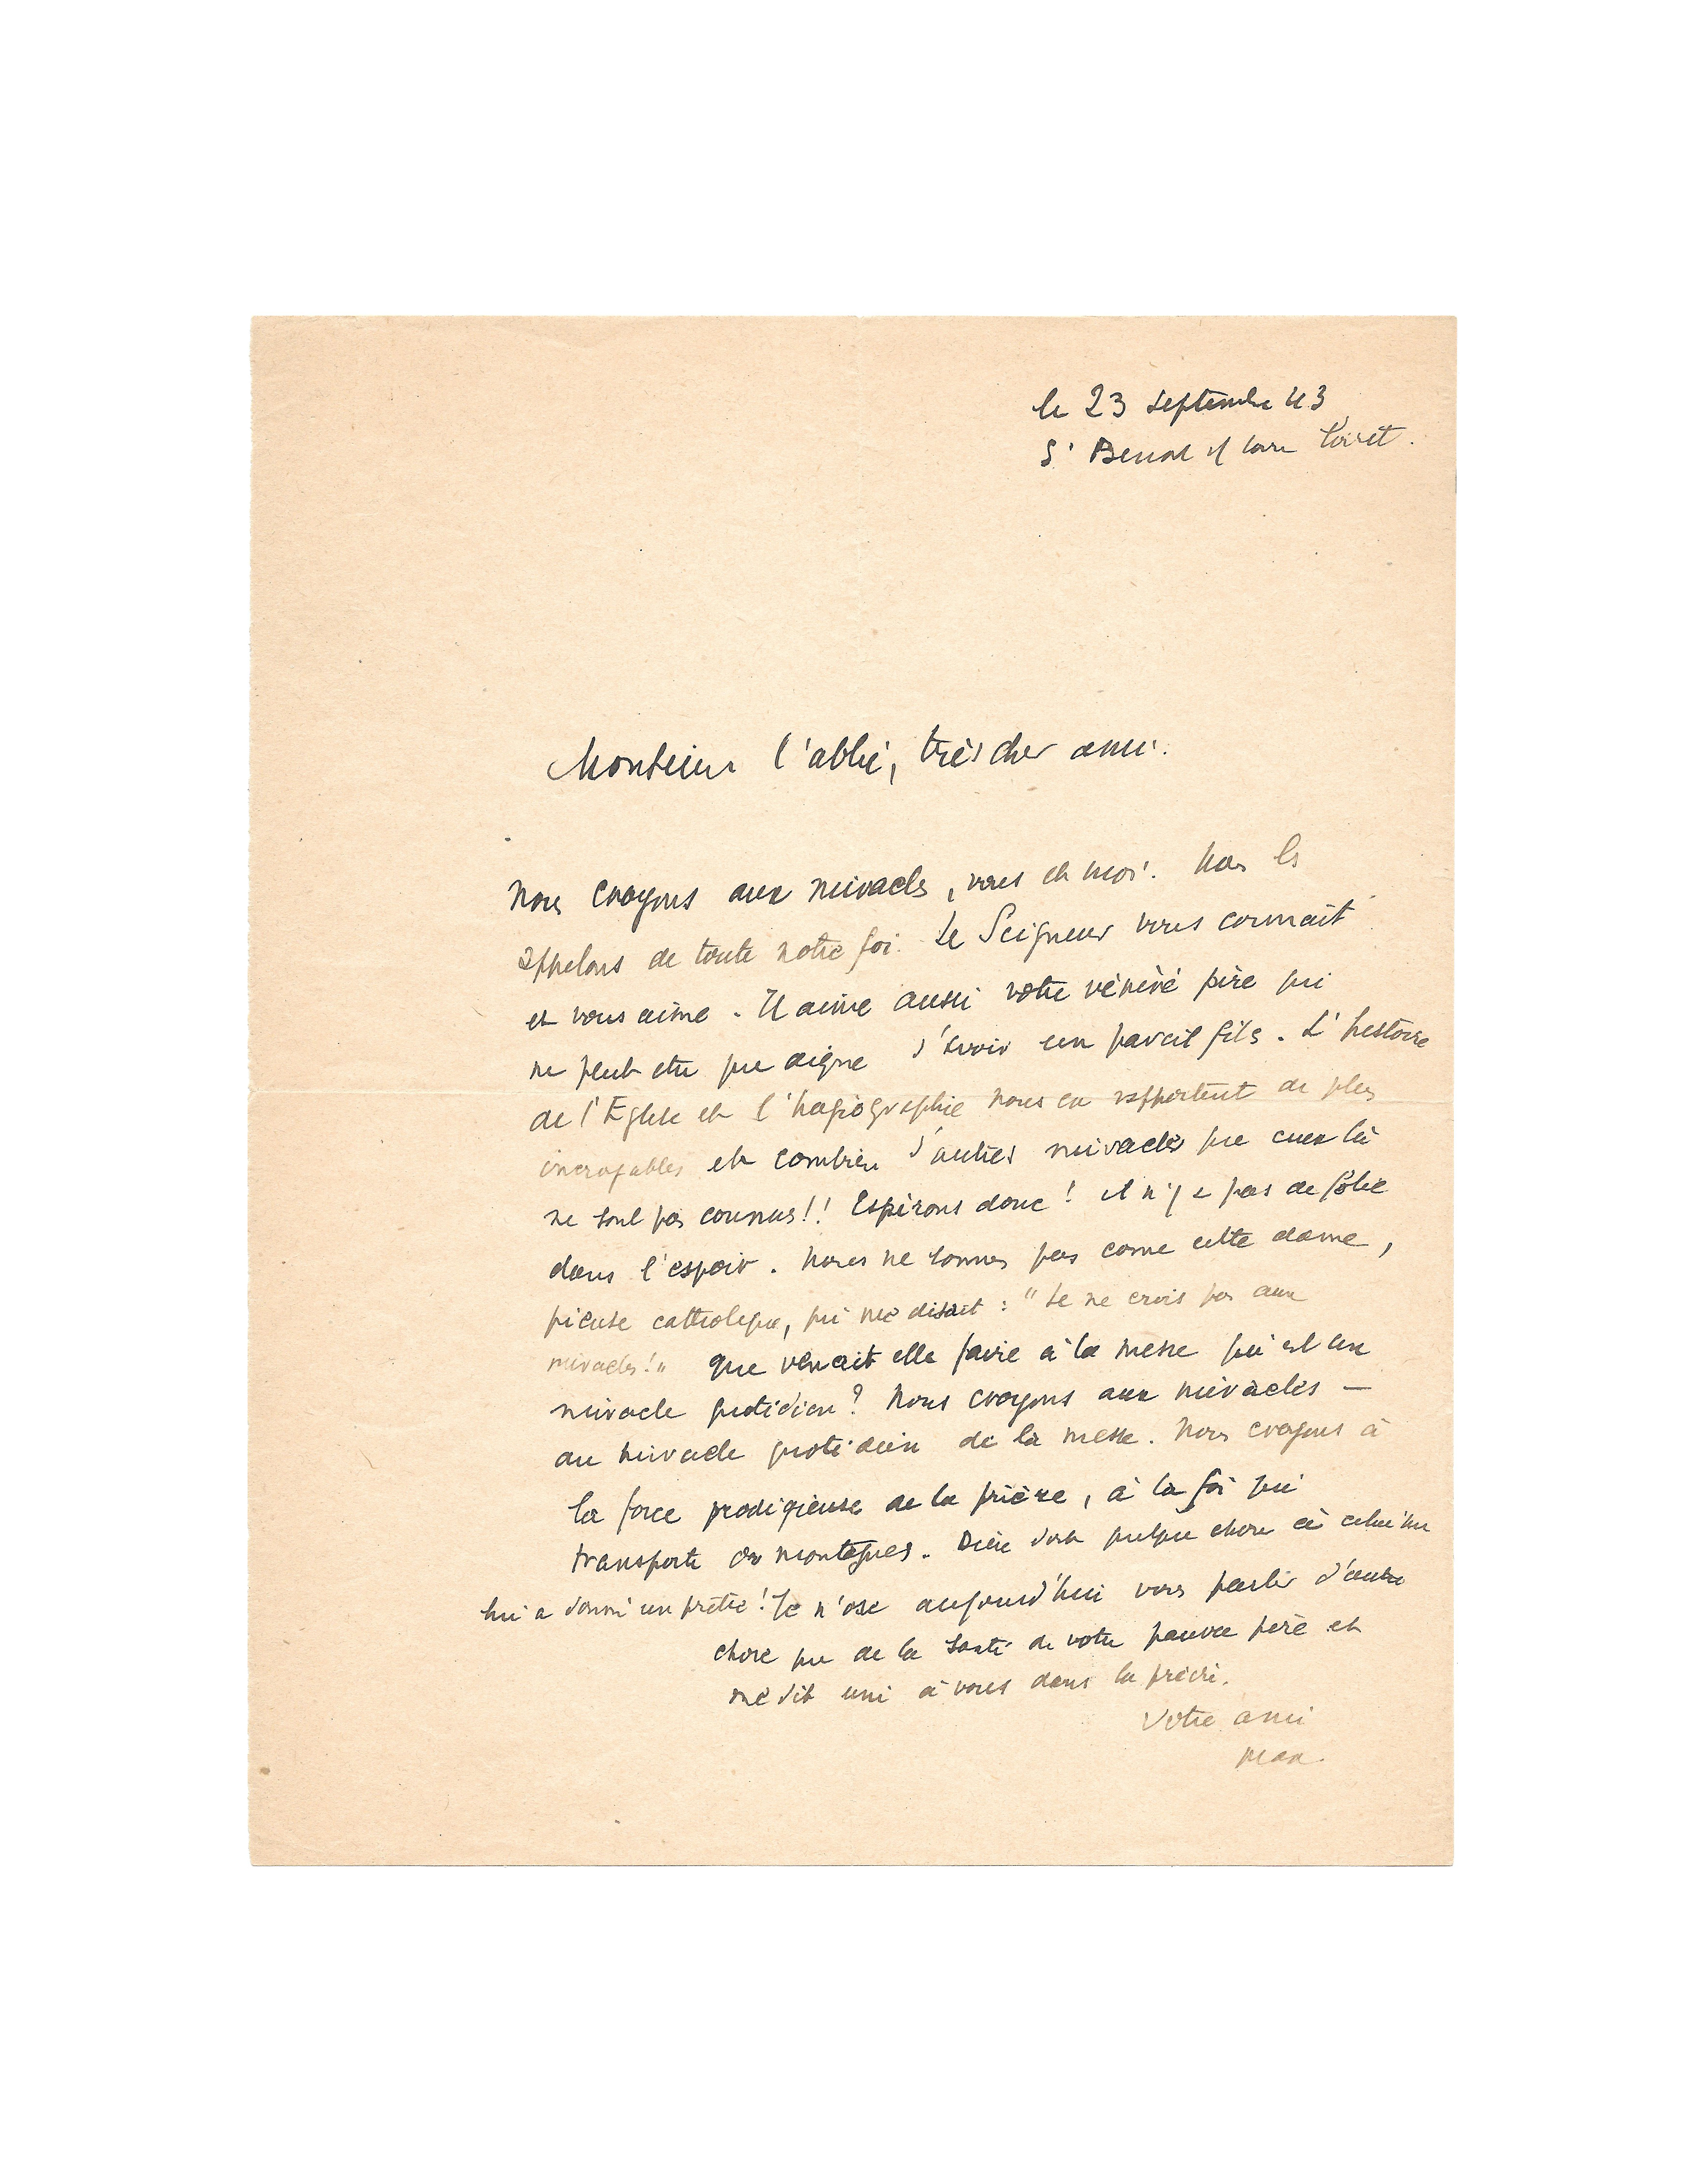 le 23 septembre 43
St Benoit s/ Loire Loiret.
Monsieur l'abbé, très cher ami.
Nous croyons aux miracles, vous et moi. Nous les
appelons de toute notre foi. Le Seigneur vous connait
et vous aime. Il aime aussi votre vénéré père qui
ne peut etre que digne d'avoir un pareil fils. L'histoire
de l'Eglise et l'hagiographie nous en rapportent de plus
incroyables et combien d'autres miracles que ceux là
ne sont pas connus!! Espérons donc! il n'y a pas de folie
dans l'espoir. Nous ne sommes pas come cette dame,
pieuse catholique, qui me disait : "Je ne crois pas aux
miracles!" Que venait elle faire à la messe qui est un
miracle quotidien? Nous croyons aux miracles —
au miracle quotidien de la messe. Nous croyons à
la force prodigieuse de la prière, à la foi qui
transporte les montagnes. Dieu doit quelque chose à celui qui
lui a donné un prêtre! Je n'ose aujourd'hui vous parler d'autre
chose que de la santé de votre pauvre père et
me dit uni à vous dans la prière.
Votre ami
Max.